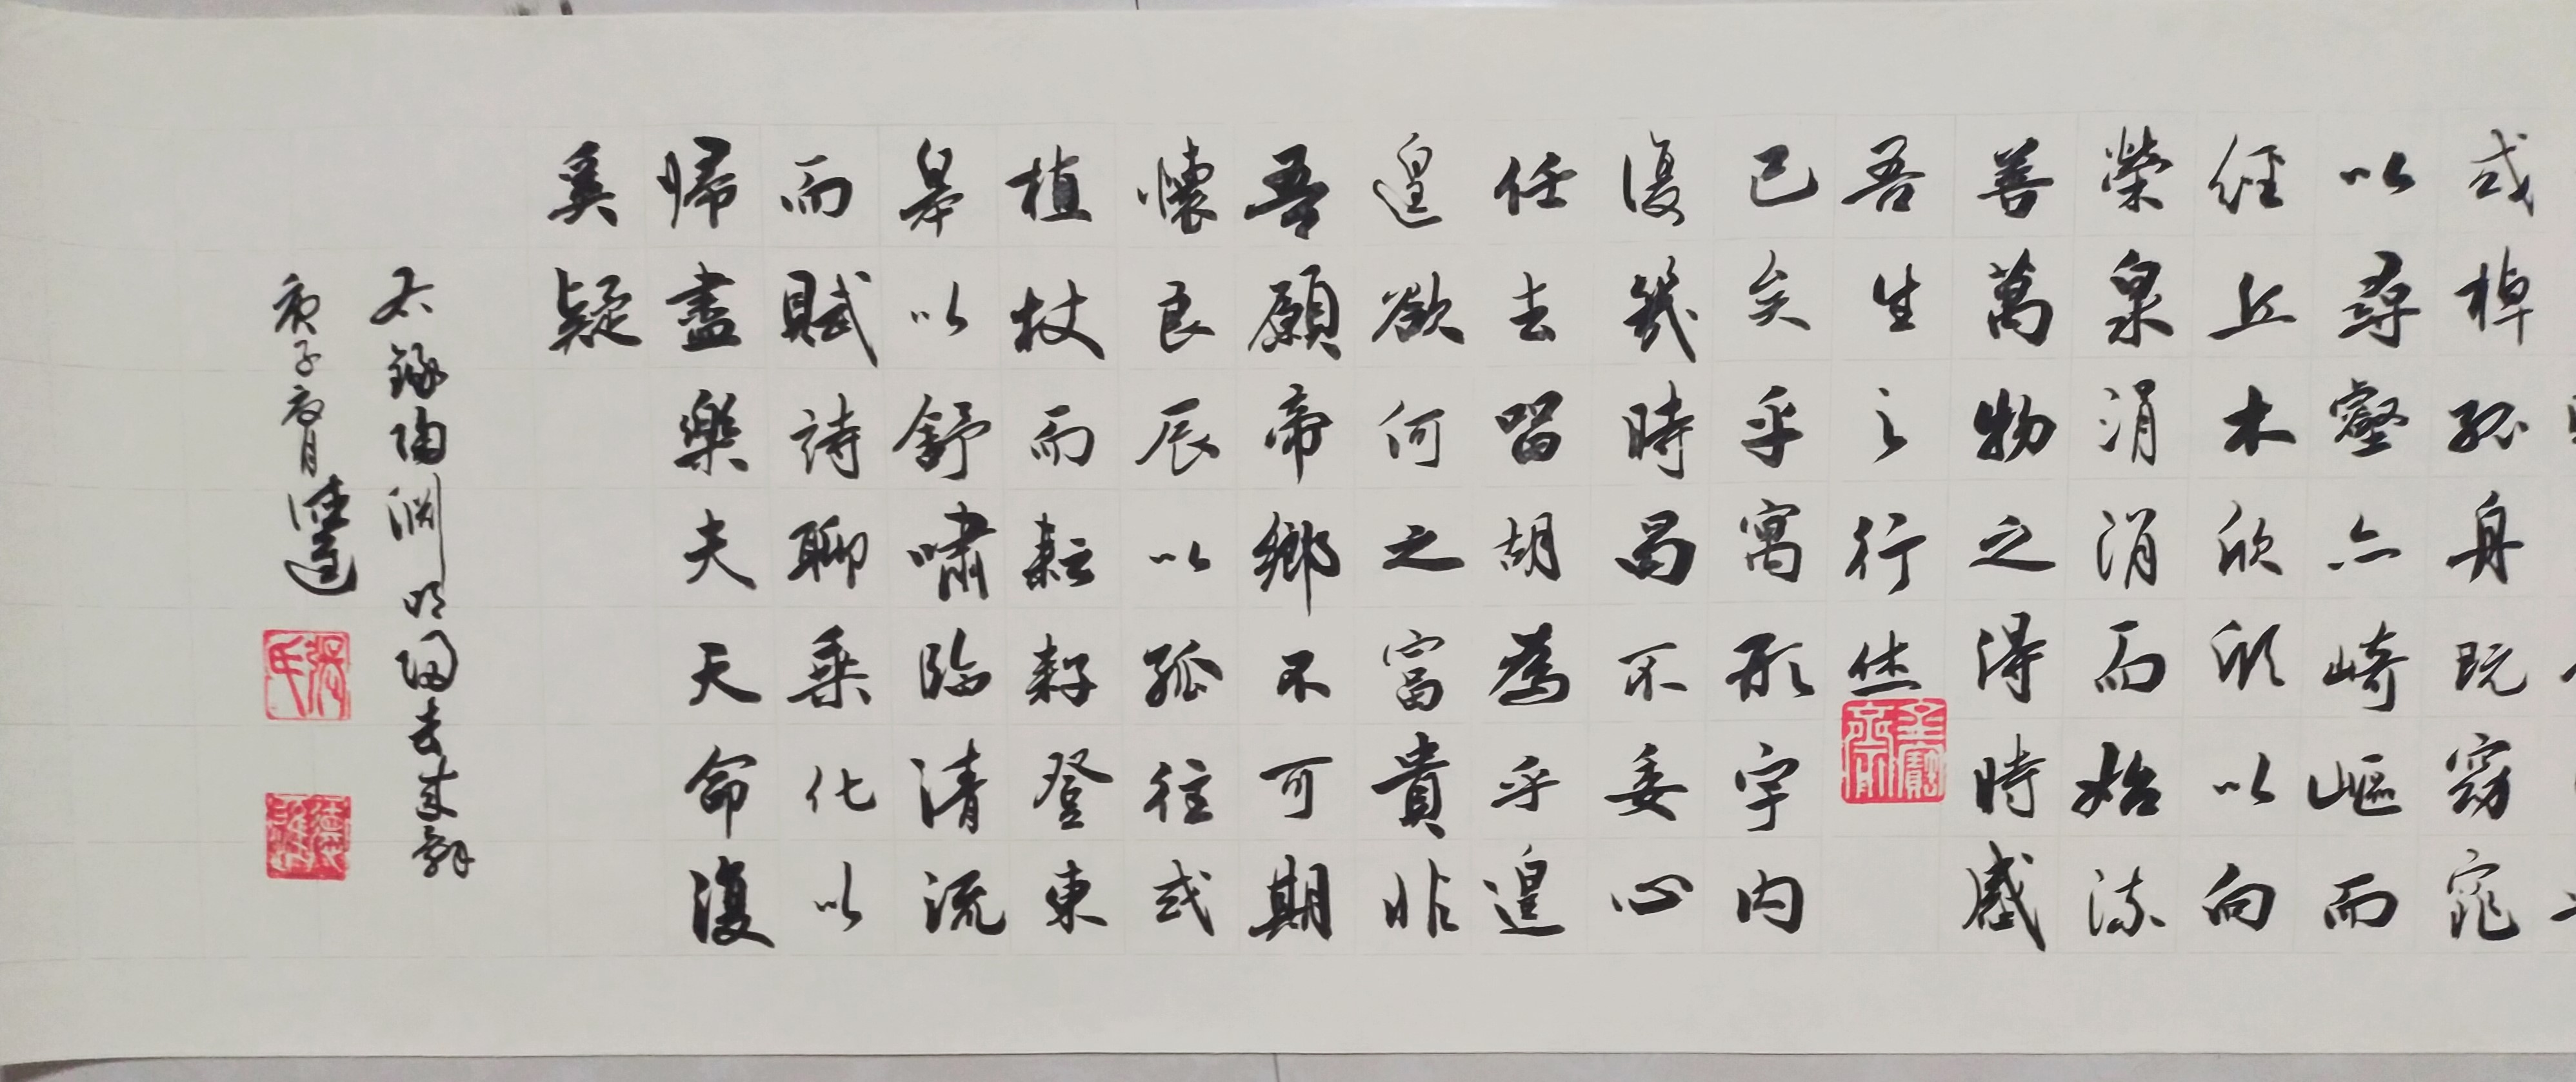 或棹孤舟既窈窕
以尋壑亦崎嶇而
經丘木欣欣以向
榮泉涓涓而始流
善萬物之得時感
吾生之行休
已矣乎寓形宇内
復幾時曷不委心
任去留胡為乎遑
遑欲何之富貴非
吾願帝鄉不可期
懷良辰以孤往或
植杖而耘耔登東
皋以舒嘯臨清流
而賦詩聊乘化以
歸盡樂夫天命復
奚疑
右錄陶淵明歸去來辭
庚子夏月